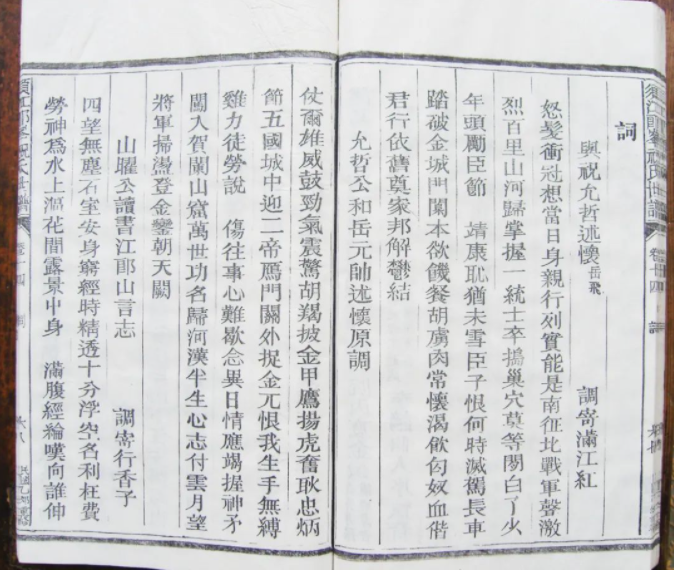 須江郎峯祝氏世譜
卷十四
詞
與祝允哲述懷 岳飛 調寄滿江紅
怒髮衝冠想當日身親行列實能是南征北戰軍聲激
烈百里山河歸掌握一統士卒搗巢穴莫等閒白了少
年頭勵臣節 靖康恥猶未雪臣子恨何時滅駕長車
踏破金城門闕本欲饑餐胡虜肉常懷渴飲匈奴血偕
君行依舊奠家邦解鬱結
允哲公和岳元帥述懷原調
仗爾雄威鼓勁氣震驚胡羯披金甲鷹揚虎奮耿忠炳
節五國城中迎二帝鴈門關外捉金兀恨我生手無縛
雞力徒勞說 傷往事心難歇念異日情應竭握神矛
闖入賀蘭山窟萬世功名歸河漢半生心志付雲月望
將軍掃盪登金鑾朝天闕
山曜公讀書江郎山言志 調寄行香子
四望無塵石室安身窮經時精透十分浮空名利枉費
勞神爲水上漚花間露景中身 滿腹經綸嘆向誰伸
須江郎峯祝氏世譜
卷十四 詞